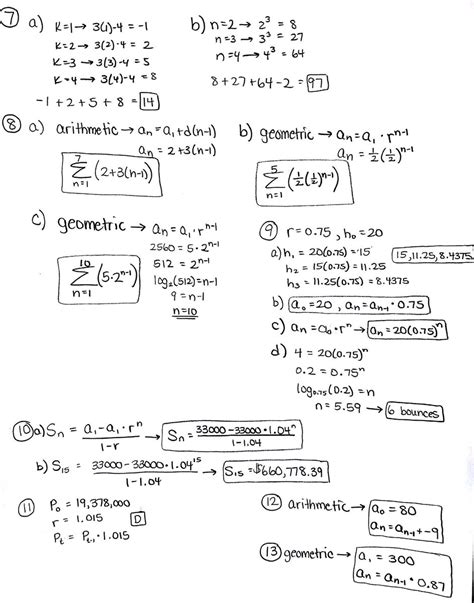 7 a) K=1→ 3(1)-4 = -1
K=2→ 3(2)-4 = 2
K=3 → 3(3)-4 = 5
K=4→ 3(4)-4 = 8
-1 + 2 + 5 + 8 = 14
b) n=2→ 2³ = 8
n=3 → 3³ = 27
n=4→ 4³ = 64
8+27+64-2 = 97
8 a) arithmetic → aₙ=a₁+d(n-1)
aₙ = 2+3(n-1)
7
Σ (2+3(n-1))
n=1
b) geometric → aₙ=a₁·rⁿ⁻¹
aₙ = ½(½)ⁿ⁻¹
5
Σ (½(½)ⁿ⁻¹)
n=1
c) geometric → aₙ=a₁·rⁿ⁻¹
2560 = 5·2ⁿ⁻¹
512 = 2ⁿ⁻¹
log₂(512)=n-1
9 = n-1
n=10
10
Σ (5·2ⁿ⁻¹)
n=1
9 r=0.75, h₀=20
a) h₁ = 20(0.75)=15
h₂ = 15(0.75) = 11.25
h₃ = 11.25(0.75) = 8.4375
15, 11.25, 8.4375
b) a₀=20, aₙ=aₙ₋₁·0.75
c) aₙ=a₀·rⁿ→ aₙ=20(0.75)ⁿ
d) 4 = 20(0.75)ⁿ
0.2 = 0.75ⁿ
log₀.₇₅(0.2) = n
n = 5.59 → 6 bounces
10 a) Sₙ = (a₁-a₁·rⁿ)/(1-r) → Sₙ = (33000-33000·1.04ⁿ)/(1-1.04)
b) S₁₅ = (33000-33000·1.04¹⁵)/(1-1.04) → S₁₅=$660,778.39
11 P₀ = 19,378,000
r = 1.015 D
Pₜ = Pₜ₋₁·1.015
12 arithmetic → a₀ = 80
aₙ=aₙ₋₁+-9
13 geometric → a₁ = 300
aₙ = aₙ₋₁·0.87